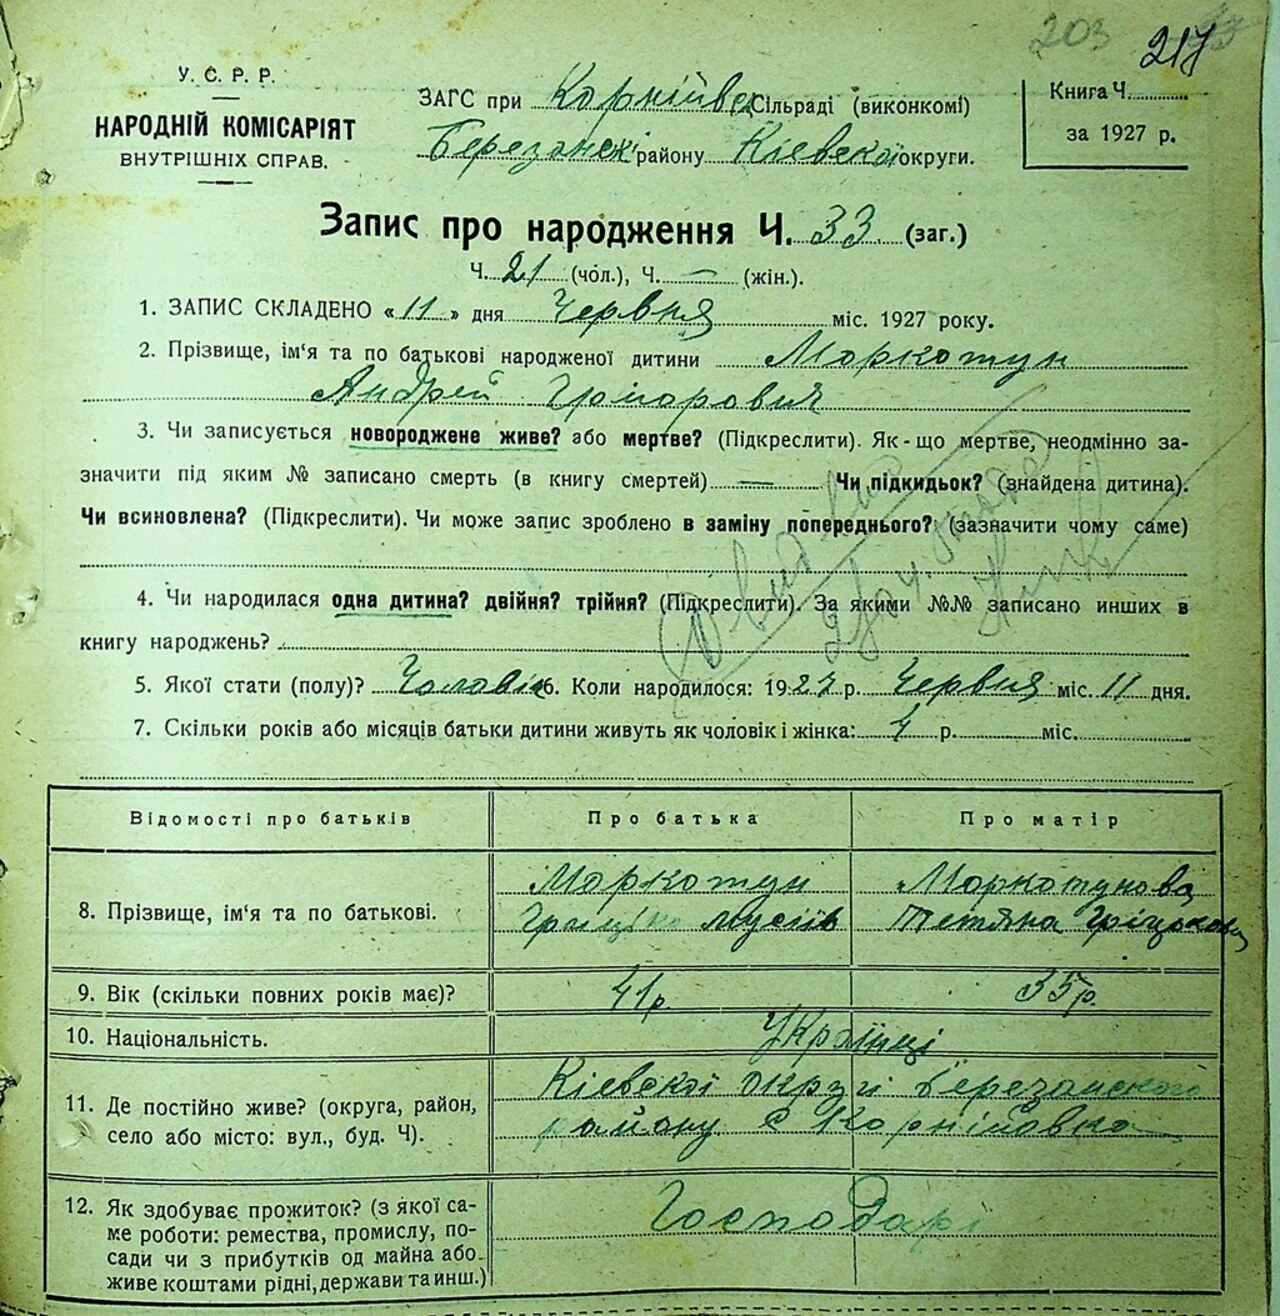 203 217
У. С. Р. Р.
НАРОДНІЙ КОМІСАРІЯТ
ВНУТРІШНІХ СПРАВ.
ЗАГС при Корнійвс Сільраді (виконкомі)
Березанскі району Кіевскої округи.
Книга Ч.
за 1927 р.
Запис про народження Ч. 33 (заг.)
Ч. 21 (чол.), Ч. — (жін.).
1. ЗАПИС СКЛАДЕНО « 11 » дня Червня міс. 1927 року.
2. Прізвище, ім'я та по батькові народженої дитини Моркотун
Андрей Григорович
3. Чи записується новороджене живе? або мертве? (Підкреслити). Як-що мертве, неодмінно за-
значити під яким № записано смерть (в книгу смертей) — Чи підкидьок? (знайдена дитина).
Чи всиновлена? (Підкреслити). Чи може запис зроблено в заміну попереднього? (зазначити чому саме)
4. Чи народилася одна дитина? двійня? трійня? (Підкреслити). За якими №№ записано инших в
книгу народжень?
5. Якої стати (полу)? Чоловік 6. Коли народилося: 1927 р. Червня міс. 11 дня.
7. Скільки років або місяців батьки дитини живуть як чоловік і жінка: р. міс.
Відомості про батьків Про батька Про матір
8. Прізвище, ім'я та по батькові. Моркотун Моркотунова
Грицько Мусіїв Тетяна Гріцькова
9. Вік (скільки повних років має)? 41р. 35р.
10. Національність. Українці
11. Де постійно живе? (округа, район, Кіевскої округи Березанского
село або місто: вул., буд. Ч). району с Корніївка
12. Як здобуває прожиток? (з якої са- Господарі
ме роботи: ремества, промислу, по-
сади чи з прибутків од майна або
живе коштами рідні, держави та инш.)